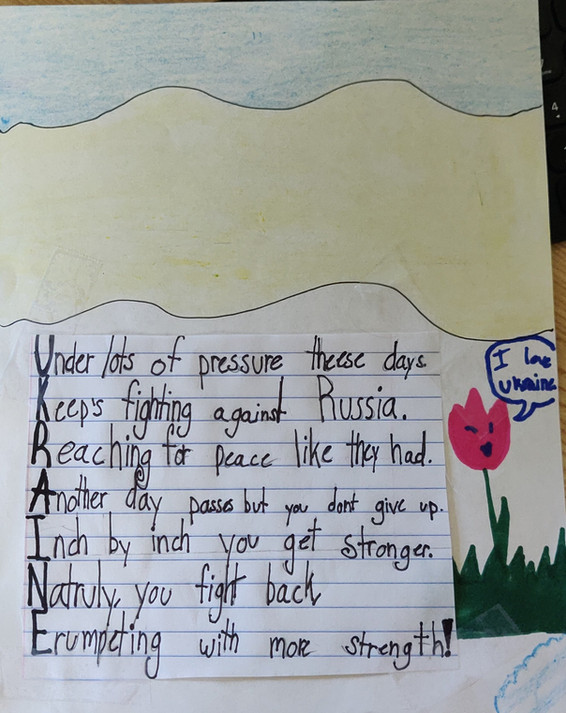 I love
Ukraine
Under lots of pressure theese days
Keeps fighting against Russia.
Reaching for peace like they had.
Another day passes but you dont give up.
Inch by inch you get stronger.
Natruly, you fight back
Erumpeting with more strength!